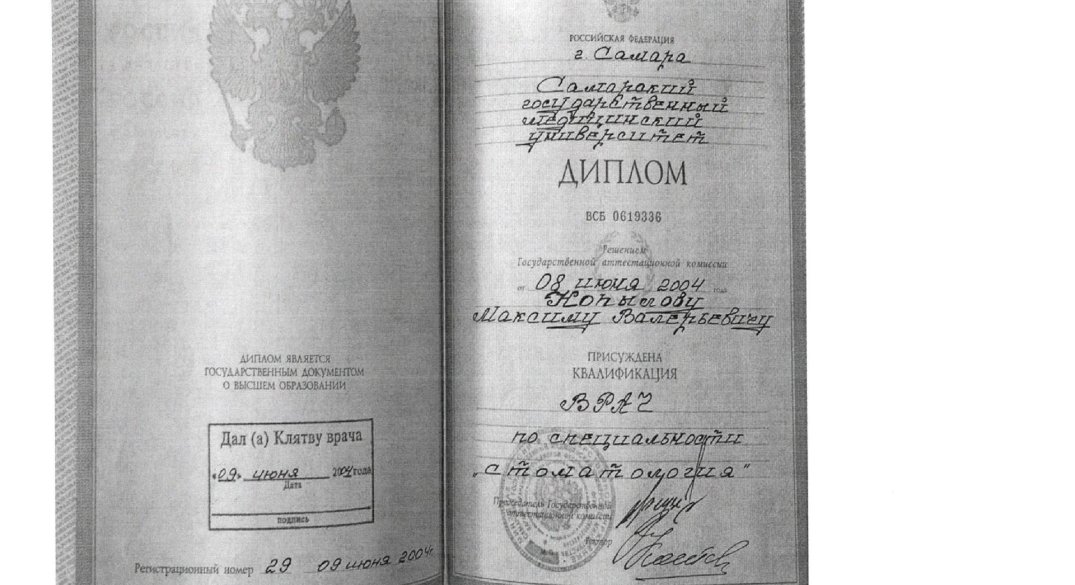 ДИПЛОМ ЯВЛЯЕТСЯ
ГОСУДАРСТВЕННЫМ ДОКУМЕНТОМ
О ВЫСШЕМ ОБРАЗОВАНИИ
Дал (а) Клятву врача
«09» июня 2004 года
Дата
подпись
Регистрационный номер 29 09 июня 2004г.
РОССИЙСКАЯ ФЕДЕРАЦИЯ
г. Самара
Самарский
государственный
медицинский
университет
ДИПЛОМ
ВСБ 0619336
Решением
Государственной аттестационной комиссии
от 08 июня 2004 года
Копылову
Максиму Валерьевичу
ПРИСУЖДЕНА
КВАЛИФИКАЦИЯ
ВРАЧ
по специальности
„стоматология"
Председатель Государственной
аттестационной комиссии
Ректор